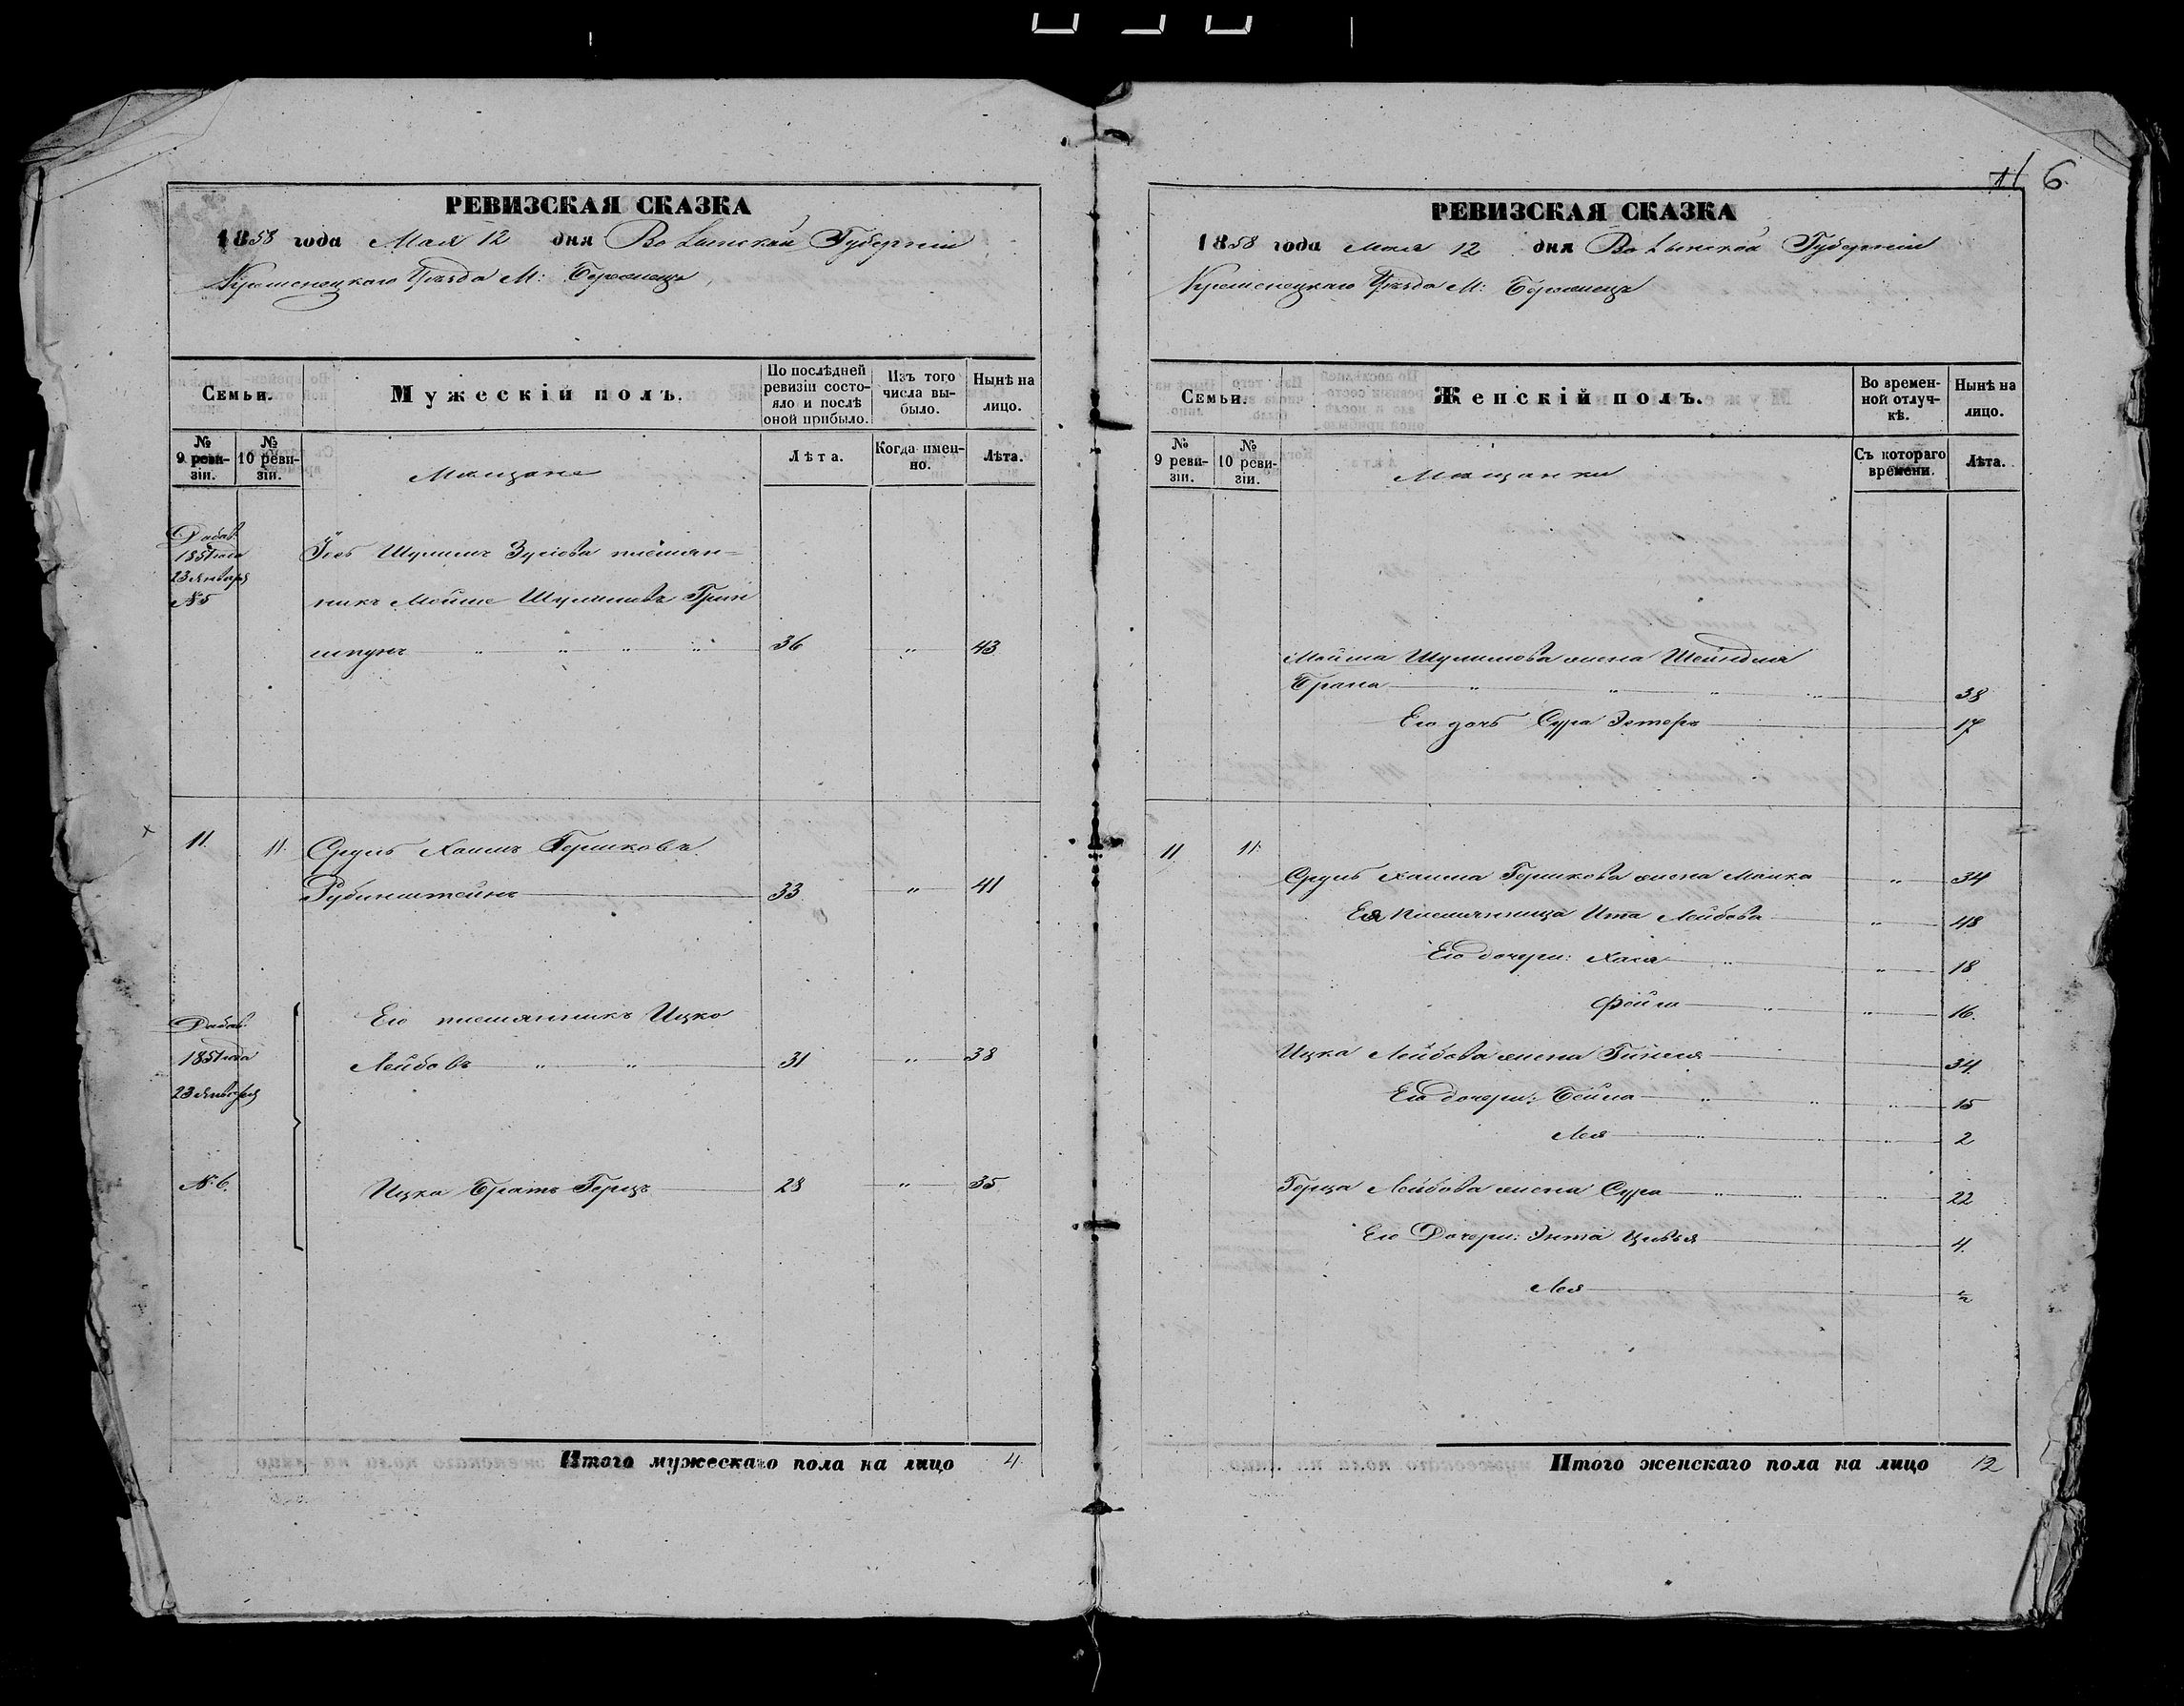 РЕВИЗСКАЯ СКАЗКА
1858 года Мая 12 дня Волынской Губерніи
Кременецкаго Уѣзда М: Бережецъ
Семьи.
Мужескій полъ.
По послѣдней ревизіи состояло и послѣ оной прибыло.
Изъ того числа выбыло.
Нынѣ на лицо.
№ 9 реви-зіи.
№ 10 реви-зіи.
Мещане
Лѣта.
Когда имен-но.
Лѣта.
Добав.
1851 года
23 Января
№ 5
Шулимъ племян=
никъ Мойше Шулимовъ Грин
шпунъ 36 " 43
11. 11. Сруль Хаимъ Гершковъ
Рубинштейнъ 33 " 41
Добав.
1851 года
23 Января
№ 6.
Его племянникъ Ицко
Лейбовъ 31 " 38
Ицка Братъ Герцъ 28 " 35
Итого мужескаго пола на лицо 4
6.
РЕВИЗСКАЯ СКАЗКА
1858 года Мая 12 дня Волынской Губерніи
Кременецкаго Уѣзда М: Бережецъ
Семьи.
Женскій полъ.
Во времен-ной отлуч-кѣ.
Нынѣ на лицо.
№ 9 реви-зіи.
№ 10 реви-зіи.
Мещанки
Съ котораго времени.
Лѣта.
Мойша Шулимова жена Шейндля
Брана 38
Его дочь Сура Эстеръ 17
11 11.
Сруль Хаима Гершкова жена Малка " 34
Ея племянница Ита Лейбова " 48
Его дочери: Хая " 18
Фейга " 16.
Ицка Лейбова жена 34
Его дочери: Бейла 15
Лея 2
Герца Лейбова жена Сура 22
Его Дочери: Цивья 4.
Лея ½
Итого женскаго пола на лицо 12